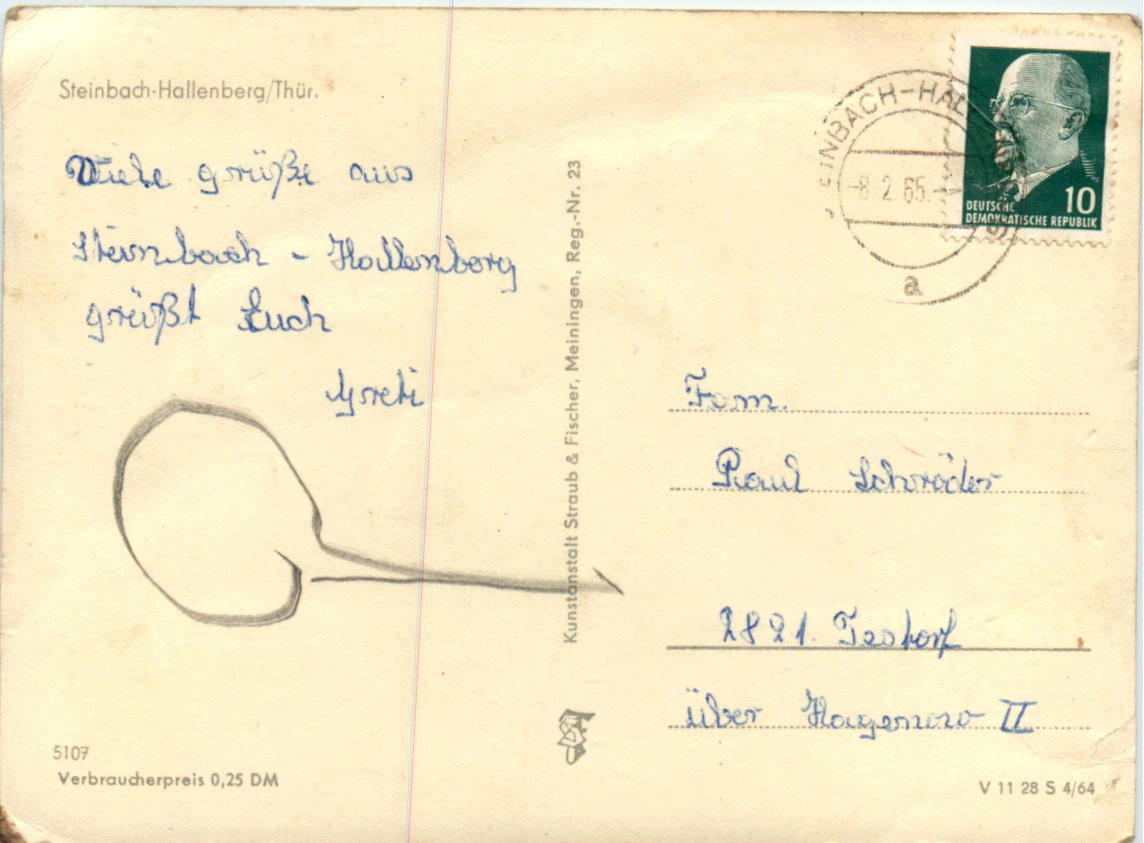 Steinbach-Hallenberg/Thür.
Viele grüße aus
Steinbach - Hallenberg
grüßt Euch
Greti
Kunstanstalt Straub & Fischer, Meiningen, Reg.-Nr. 23
5107
Verbraucherpreis 0,25 DM
EINBACH-HAL
-8. 2. 65.-
a
10
DEUTSCHE
DEMOKRATISCHE REPUBLIK
Fam.
Paul Schröder
2821. Testorf
über Hagenow II
V 11 28 S 4/64